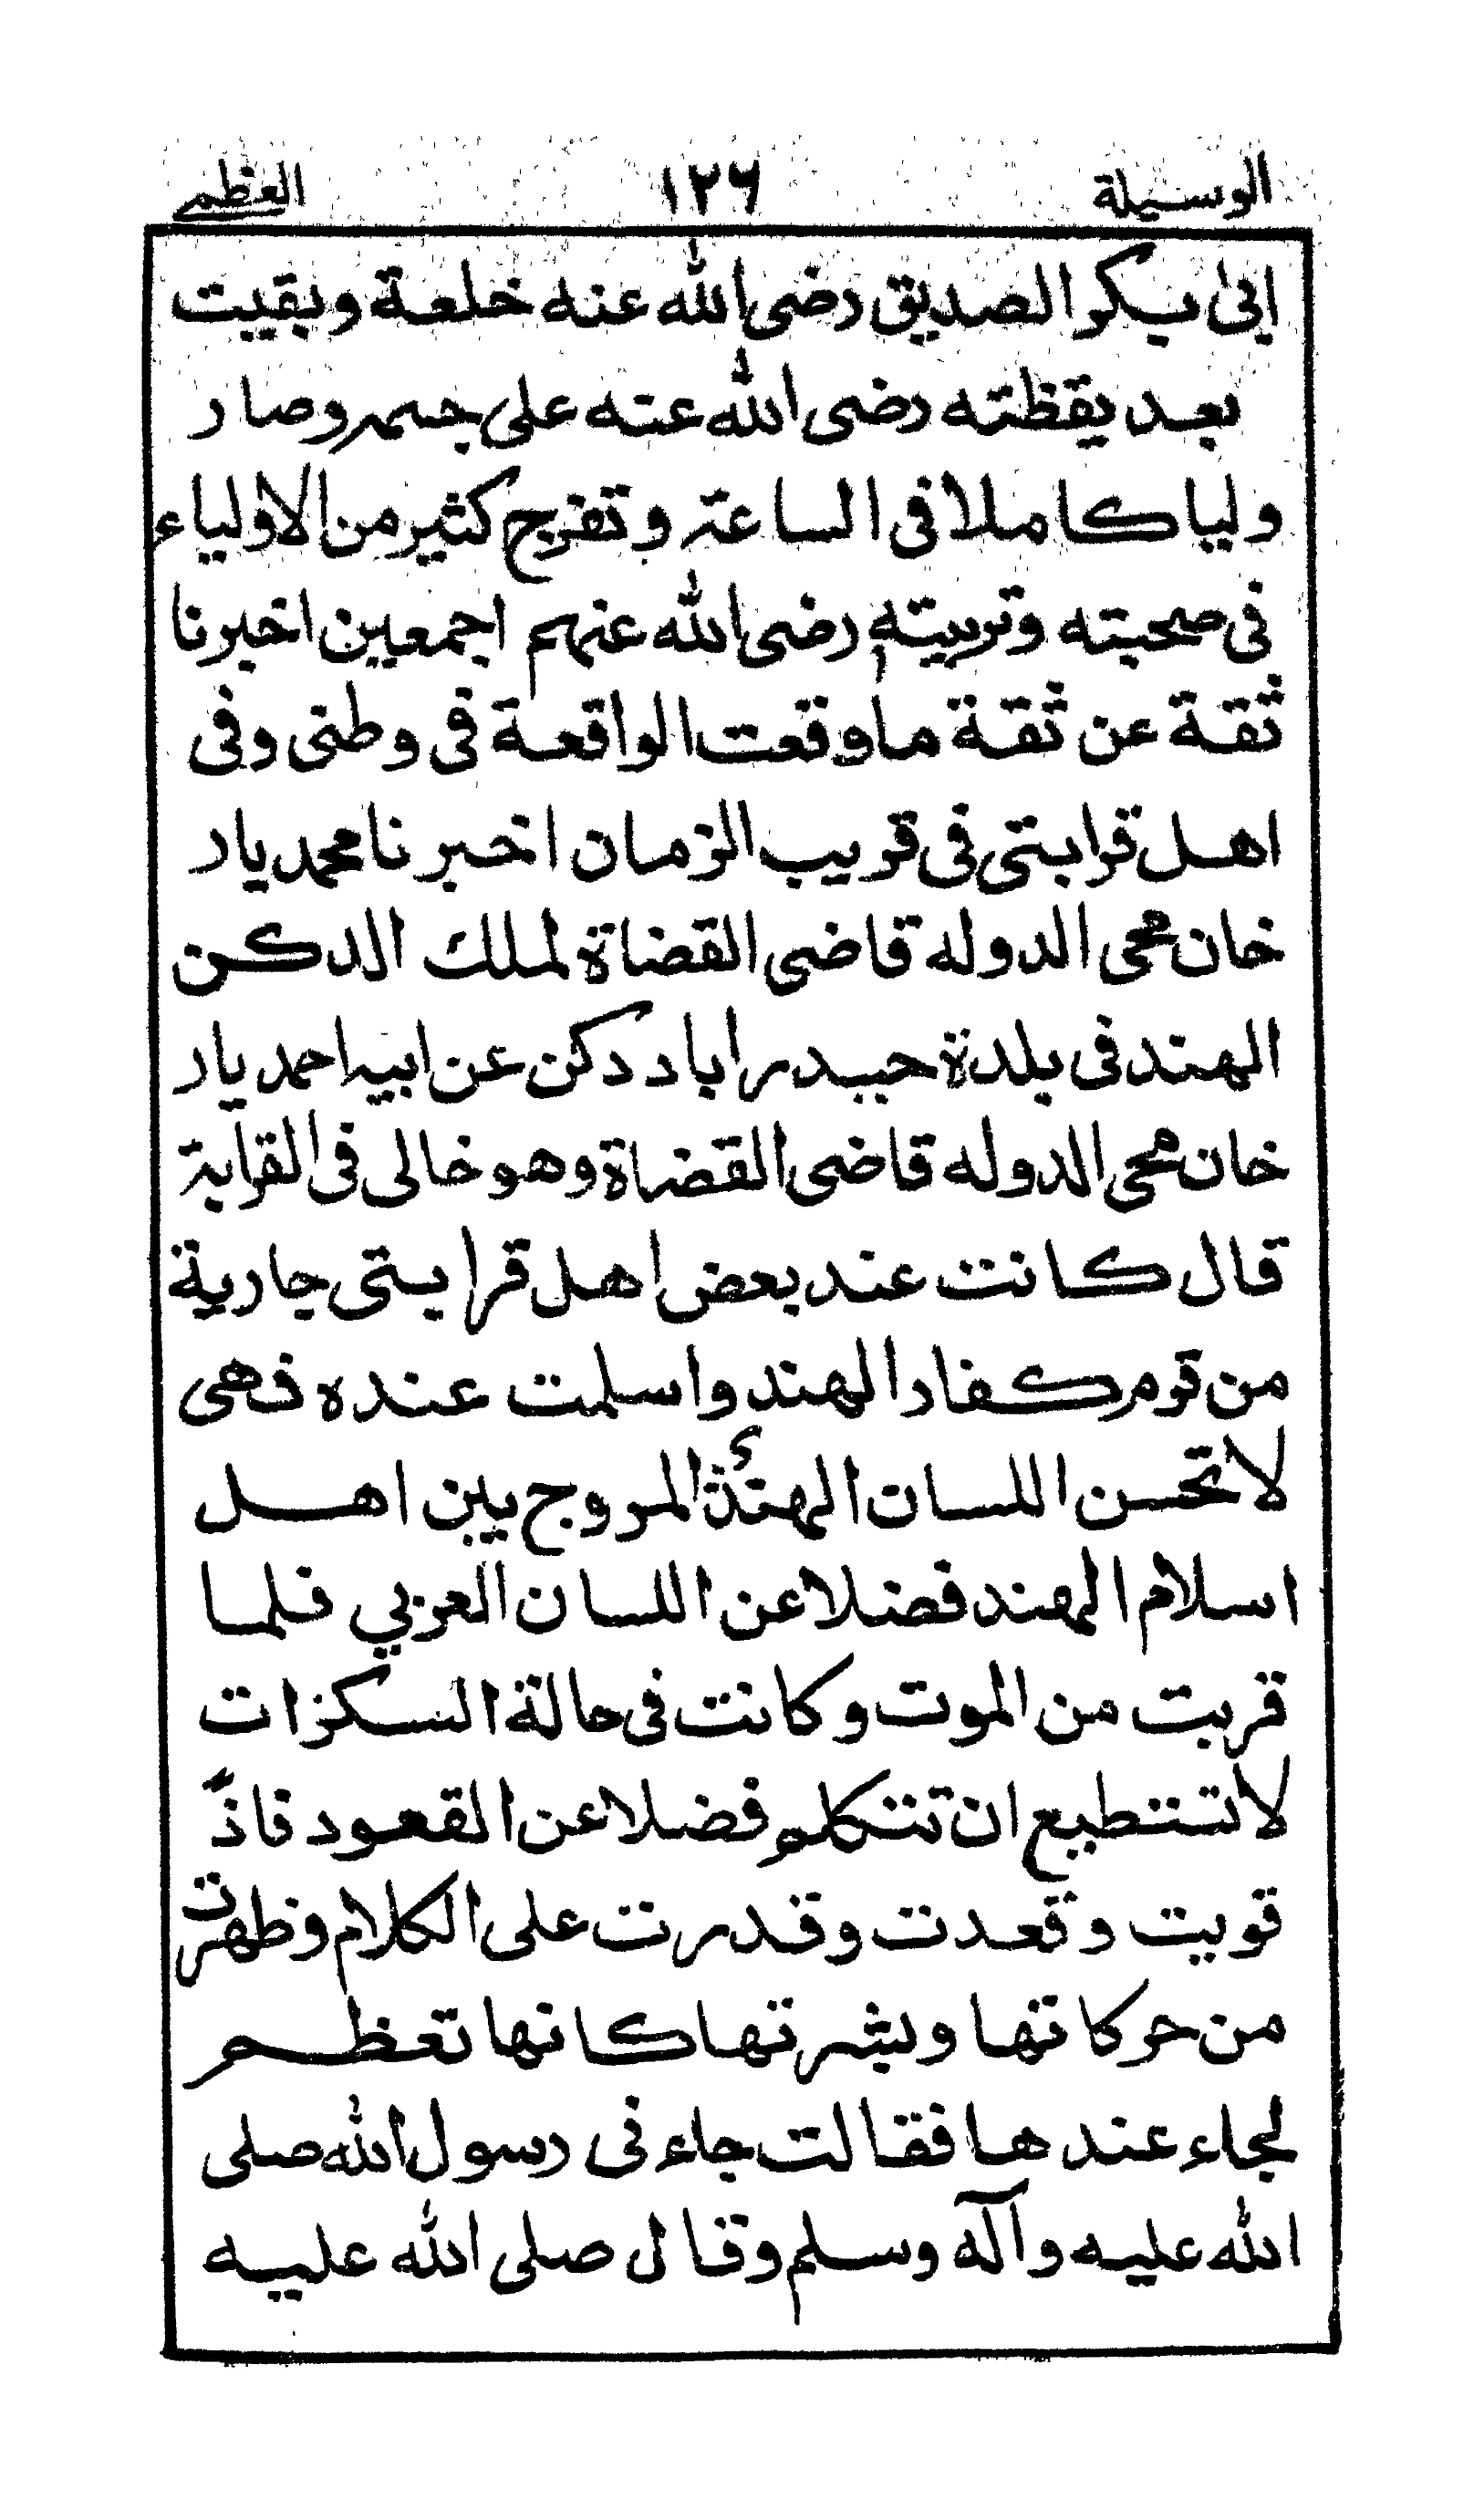 الوسيلة ١٢٦ العظمى
ابى بكر الصديق رضى الله عنه خلعة وبقيت
بعد يقظته رضى الله عنه على جسمه وصار
وليا كاملا فى الساعة وتفرج كثير من الاولياء
فى صحبته وتربيته رضى الله عنهم اجمعين اخبرنا
ثقة عن ثقة ما وقعت الواقعة فى وطنى وفى
اهل قرابتى فى قريب الزمان اخبرنا محمد يار
خان محى الدوله قاضى القضاة لملك الدكن
الهند فى بلدة حيدر اباد دكن عن ابيه احمد يار
خان محى الدوله قاضى القضاة وهو خالى فى القرابة
قال كانت عند بعض اهل قرابتى جارية
من قوم كفار الهند واسلمت عنده فهى
لا تحسن اللسان الهندئ المروج بين اهل
اسلام الهند فضلا عن اللسان العربي فلما
قربت من الموت وكانت فى حالة السكرات
لا تستطيع ان تتكلم فضلا عن القعود فاذاً
قويت وقعدت وقدرت على الكلام وظهرت
من حركاتها وبشرتها كانها تعظم
لجاء عندها فقالت جاء فى رسول الله صلى
الله عليه وآله وسلم وقال صلى الله عليه